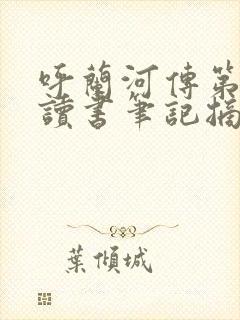 呼蘭河傳第
讀書筆記摘
葉傾城